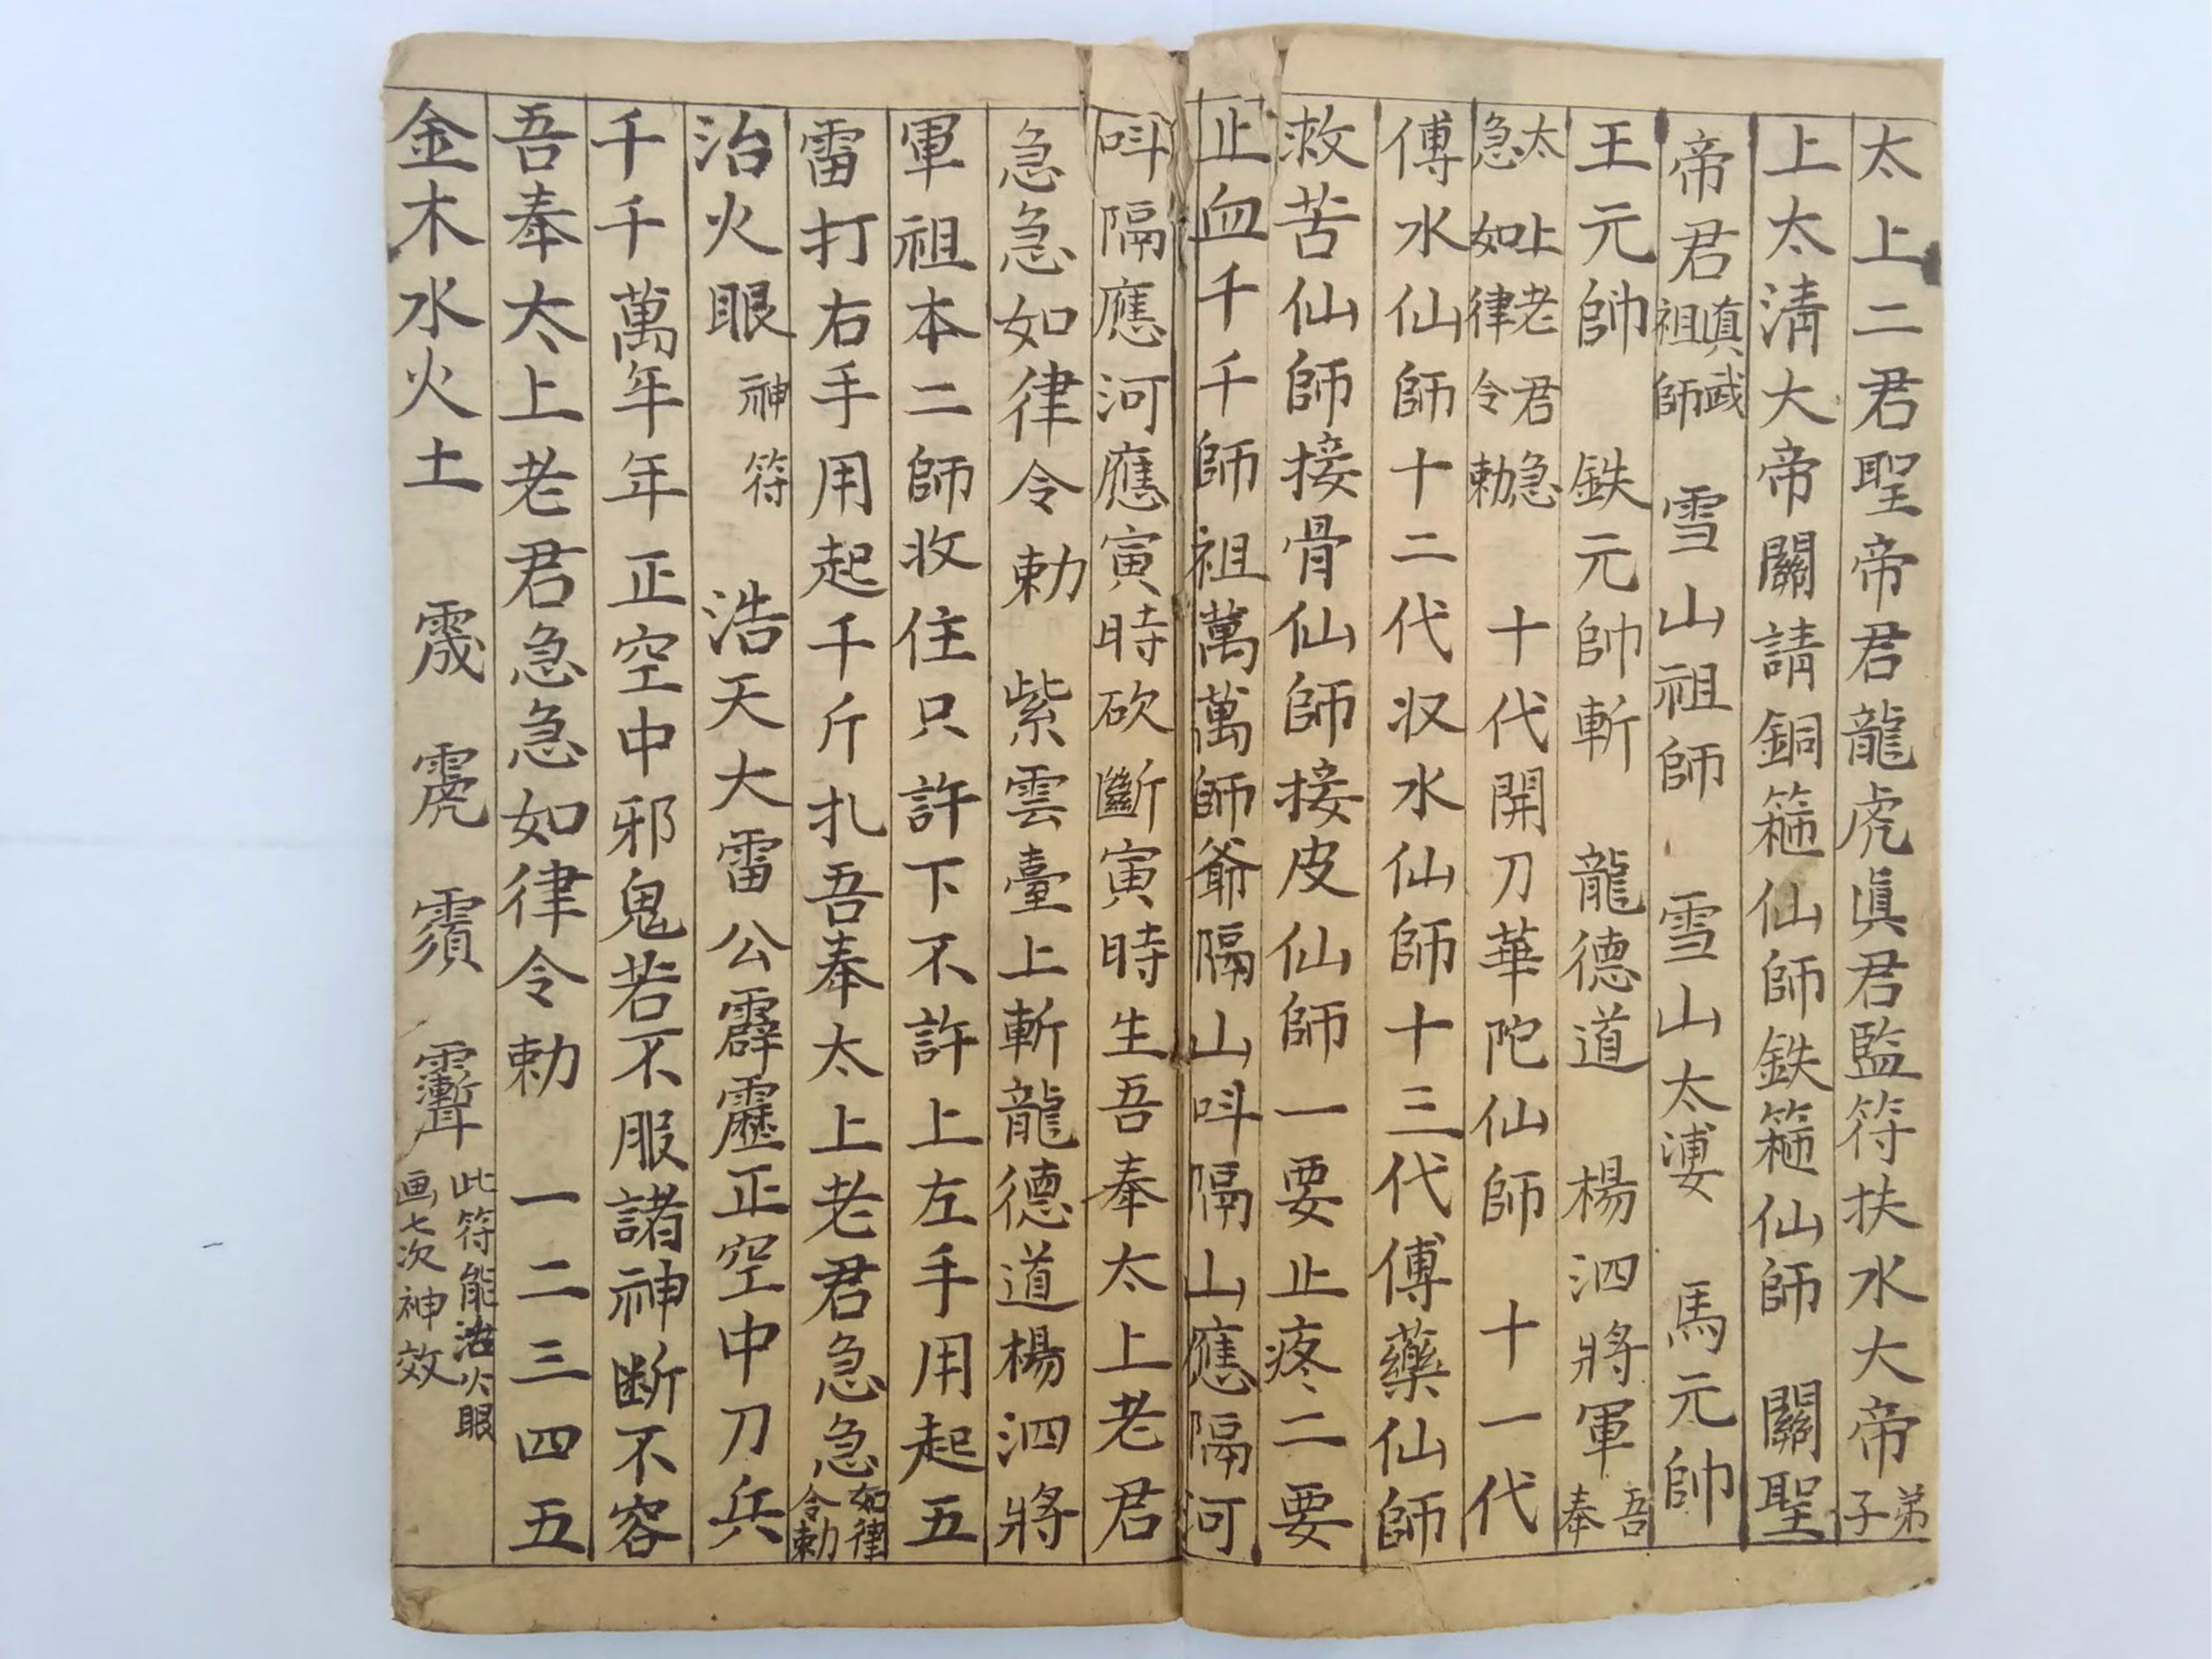 太上二君聖帝君龍虎眞君監符扶水大帝弟子
上太淸大帝關請銅箍仙師鉄箍仙師 關聖
帝君眞武祖師 雪山祖師 雪山太婆 馬元帥
王元帥 鉄元帥斬 龍德道 楊泗將軍吾奉
太上老君急急如律令勅 十代開刀華陀仙師 十一代
傅水仙師十二代収水仙師十三代傅藥仙師
救苦仙師接骨仙師接皮仙師一要止疼二要
止血千千師祖萬萬師爺隔山呌隔山應隔河
呌隔應河應寅時砍斷寅時生吾奉太上老君
急急如律令勅 紫雲臺上斬龍德道楊泗將
軍祖本二師收住只許下不許上左手用起五
雷打右手用起千斤扎吾奉太上老君急急如律令勅
治火眼神符 浩天大雷公霹靂正空中刀兵
千千萬年年正空中邪鬼若不服諸神断不容
吾奉太上老君急急如律令勅 一二三四五
金木水火土 此符能治火眼画七次神效